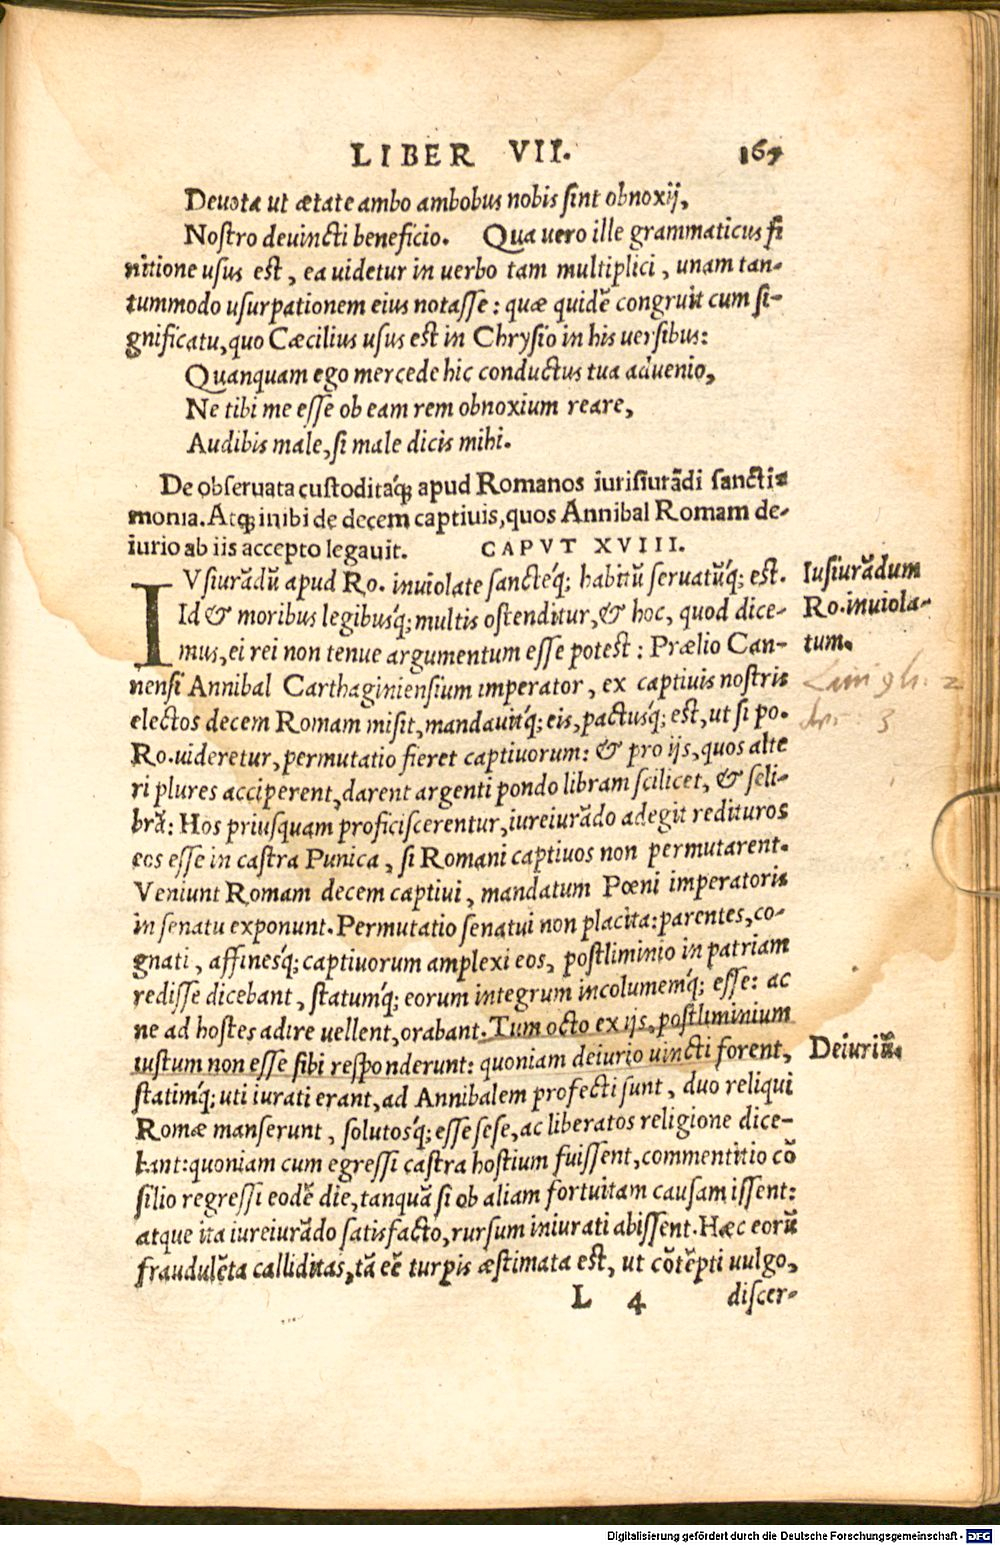 LIBER VII. 167
Deuota ut ætate ambo ambobus nobis sint obnoxij,
Nostro deuincti beneficio. Qua uero ille grammaticus fi
nitione usus est, ea uidetur in uerbo tam multiplici, unam tan-
tummodo usurpationem eius notasse: quæ quidē congruit cum si-
gnificatu, quo Cæcilius usus est in Chrysio in his uersibus:
Quanquam ego mercede hic conductus tua aduenio,
Ne tibi me esse ob eam rem obnoxium reare,
Audibis male, si male dicis mihi.
De obseruata custoditáq; apud Romanos iurisiurādi sancti-
monia. Atq; inibi de decem captiuis, quos Annibal Romam de-
iurio ab iis accepto legauit. CAPVT XVIII.
IVsiurādū apud Ro. inuiolate sancteq́; habitū seruatūq́; est.
Id & moribus legibusq́; multis ostenditur, & hoc, quod dice-
mus, ei rei non tenue argumentum esse potest: Prælio Can-
nensi Annibal Carthaginiensium imperator, ex captiuis nostris
electos decem Romam misit, mandauitq́; eis, pactusq́; est, ut si po.
Ro. uideretur, permutatio fieret captiuorum: & pro ijs, quos alte
ri plures acciperent, darent argenti pondo libram scilicet, & seli-
brā: Hos priusquam proficiscerentur, iureiurādo adegit redituros
eos esse in castra Punica, si Romani captiuos non permutarent.
Veniunt Romam decem captiui, mandatum Pœni imperatoris
in senatu exponunt. Permutatio senatui non placita: parentes, co-
gnati, affinesq́; captiuorum amplexi eos, postliminio in patriam
redisse dicebant, statumq́; eorum integrum incolumemq́; esse: ac
ne ad hostes adire uellent, orabant. Tum octo ex ijs, postliminium
iustum non esse sibi responderunt: quoniam deiurio uincti forent,
statimq́; uti iurati erant, ad Annibalem profecti sunt, duo reliqui
Romæ manserunt, solutosq́; esse sese, ac liberatos religione dice-
bant: quoniam cum egressi castra hostium fuissent, commentitio cō
silio regressi eodē die, tanquā si ob aliam fortuitam causam issent:
atque ita iureiurādo satisfacto, rursum iniurati abissent. Hæc eorū
fraudulēta calliditas, tā eē turpis æstimata est, ut cōtēpti uulgo,
L 4 discer-
Iusiurādum
Ro. inuiola-
tum.
2
3
Deiuriū.
Digitalisierung gefördert durch die Deutsche Forschungsgemeinschaft - DFG